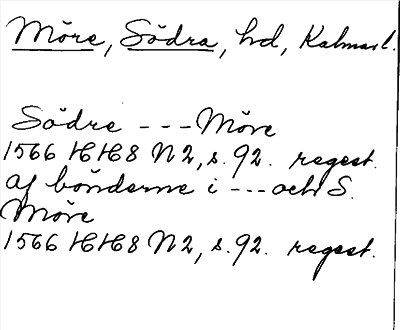 Möre, Södra, hd, Kalmar l.
Södre --- Möre
1566 HH8 N2, s. 92. regest.
af bönderne i --- och S.
Möre
1566 HH8 N2, s. 92. regest.